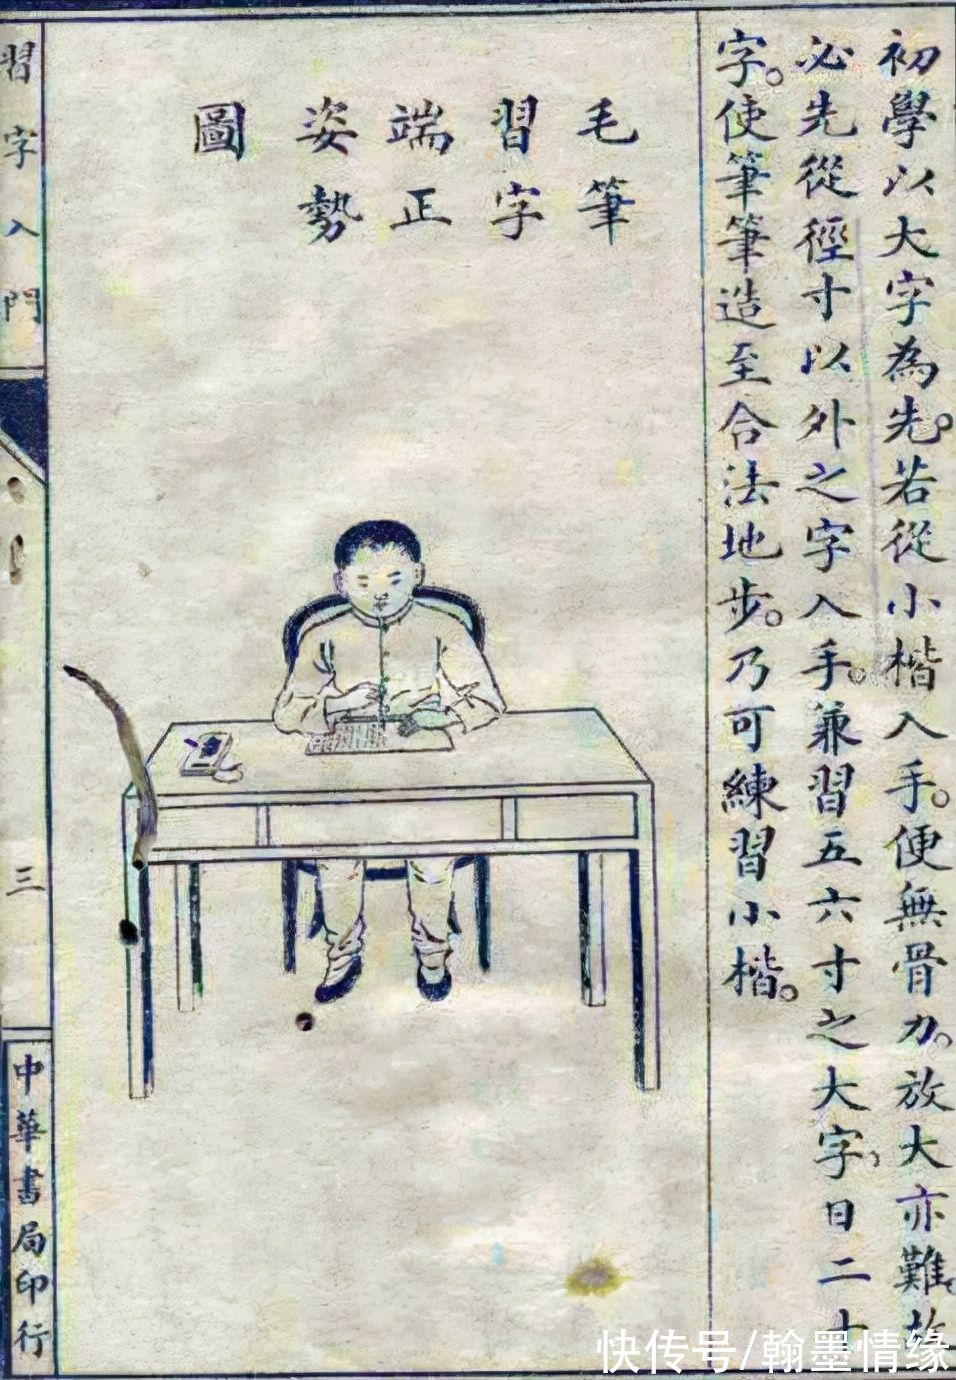 初學以大字為先。若從小楷入手。便無骨力。放大亦難。故
必先從徑寸以外之字入手。兼習五六寸之大字，日二十
字。使筆筆造至合法地步。乃可練習小楷。
毛筆
習字
端正
姿勢
圖
習字入門
三
中華書局印行
快传号/翰墨情缘